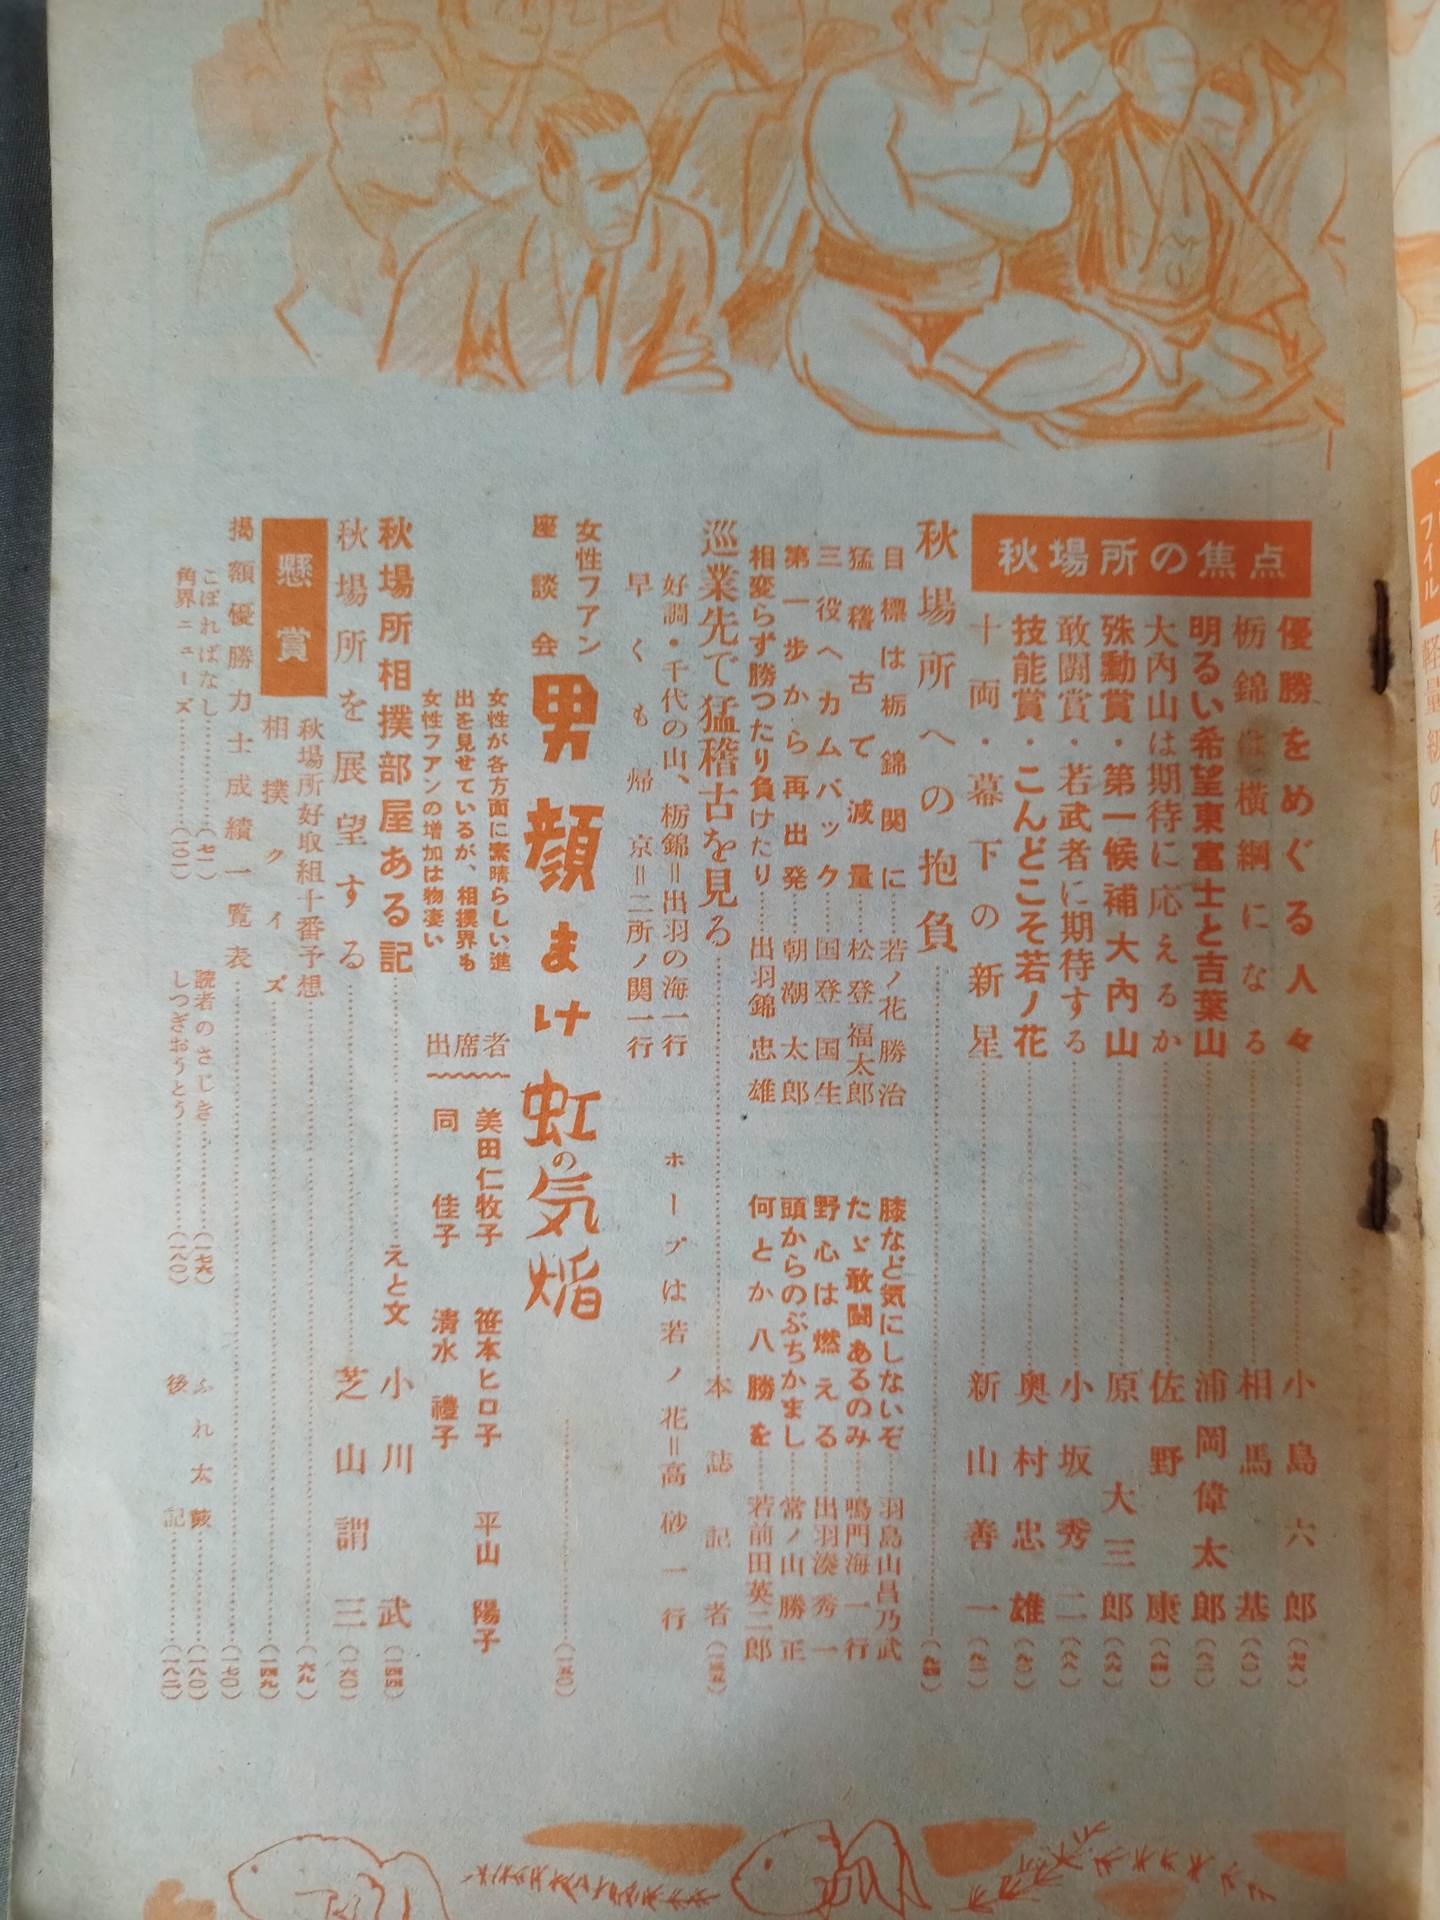 秋場所の焦点
優勝をめぐる人々……小島六郎（七六）
栃錦は横綱になる……相馬基（八〇）
明るい希望東富士と吉葉山……浦岡偉太郎（八二）
大内山は期待に応えるか……佐野康（八四）
殊勳賞・第一候補大内山……原大三郎（八六）
敢闘賞・若武者に期待する……小坂秀二（八八）
技能賞・こんどこそ若ノ花……奥村忠雄（九〇）
十両・幕下の新星……新山善一（九二）
秋場所への抱負……（九四）
目標は栃錦関に……若ノ花勝治
猛稽古で減量……松登福太郎
三役へカムバック……国登国生
第一歩から再出発……朝潮太郎
相変らず勝つたり負けたり……出羽錦忠雄
膝など気にしないぞ……羽島山昌乃武
たゞ敢闘あるのみ……鳴門海一行
野心は燃える……出羽湊秀一
頭からのぶちかまし……常ノ山勝正
何とか八勝を……若前田英二郎
巡業先で猛稽古を見る……本誌記者（一三五）
好調・千代の山、栃錦＝出羽の海一行
ホープは若ノ花＝高砂一行
早くも帰京＝二所ノ関一行
女性フアン
座談会
男顔まけ虹の気焔……（一五〇）
女性が各方面に素晴らしい進
出を見せているが、相撲界も
女性フアンの増加は物凄い
出席者
美田仁牧子　笹本ヒロ子　平山陽子
同佳子　清水禮子
秋場所相撲部屋ある記……えと文　小川武（一四四）
秋場所を展望する……芝山謂三（一六〇）
懸賞
秋場所好取組十番予想……（六九）
相撲クイズ……（一四九）
掲額優勝力士成績一覧表……（一七〇）
こぼればなし……（七一）
角界ニューズ……（一〇一）
読者のさじき……（一七六）
しつぎおうとう……（一八〇）
ふれ太鼓……（一八〇）
後記……（一八二）
フイル